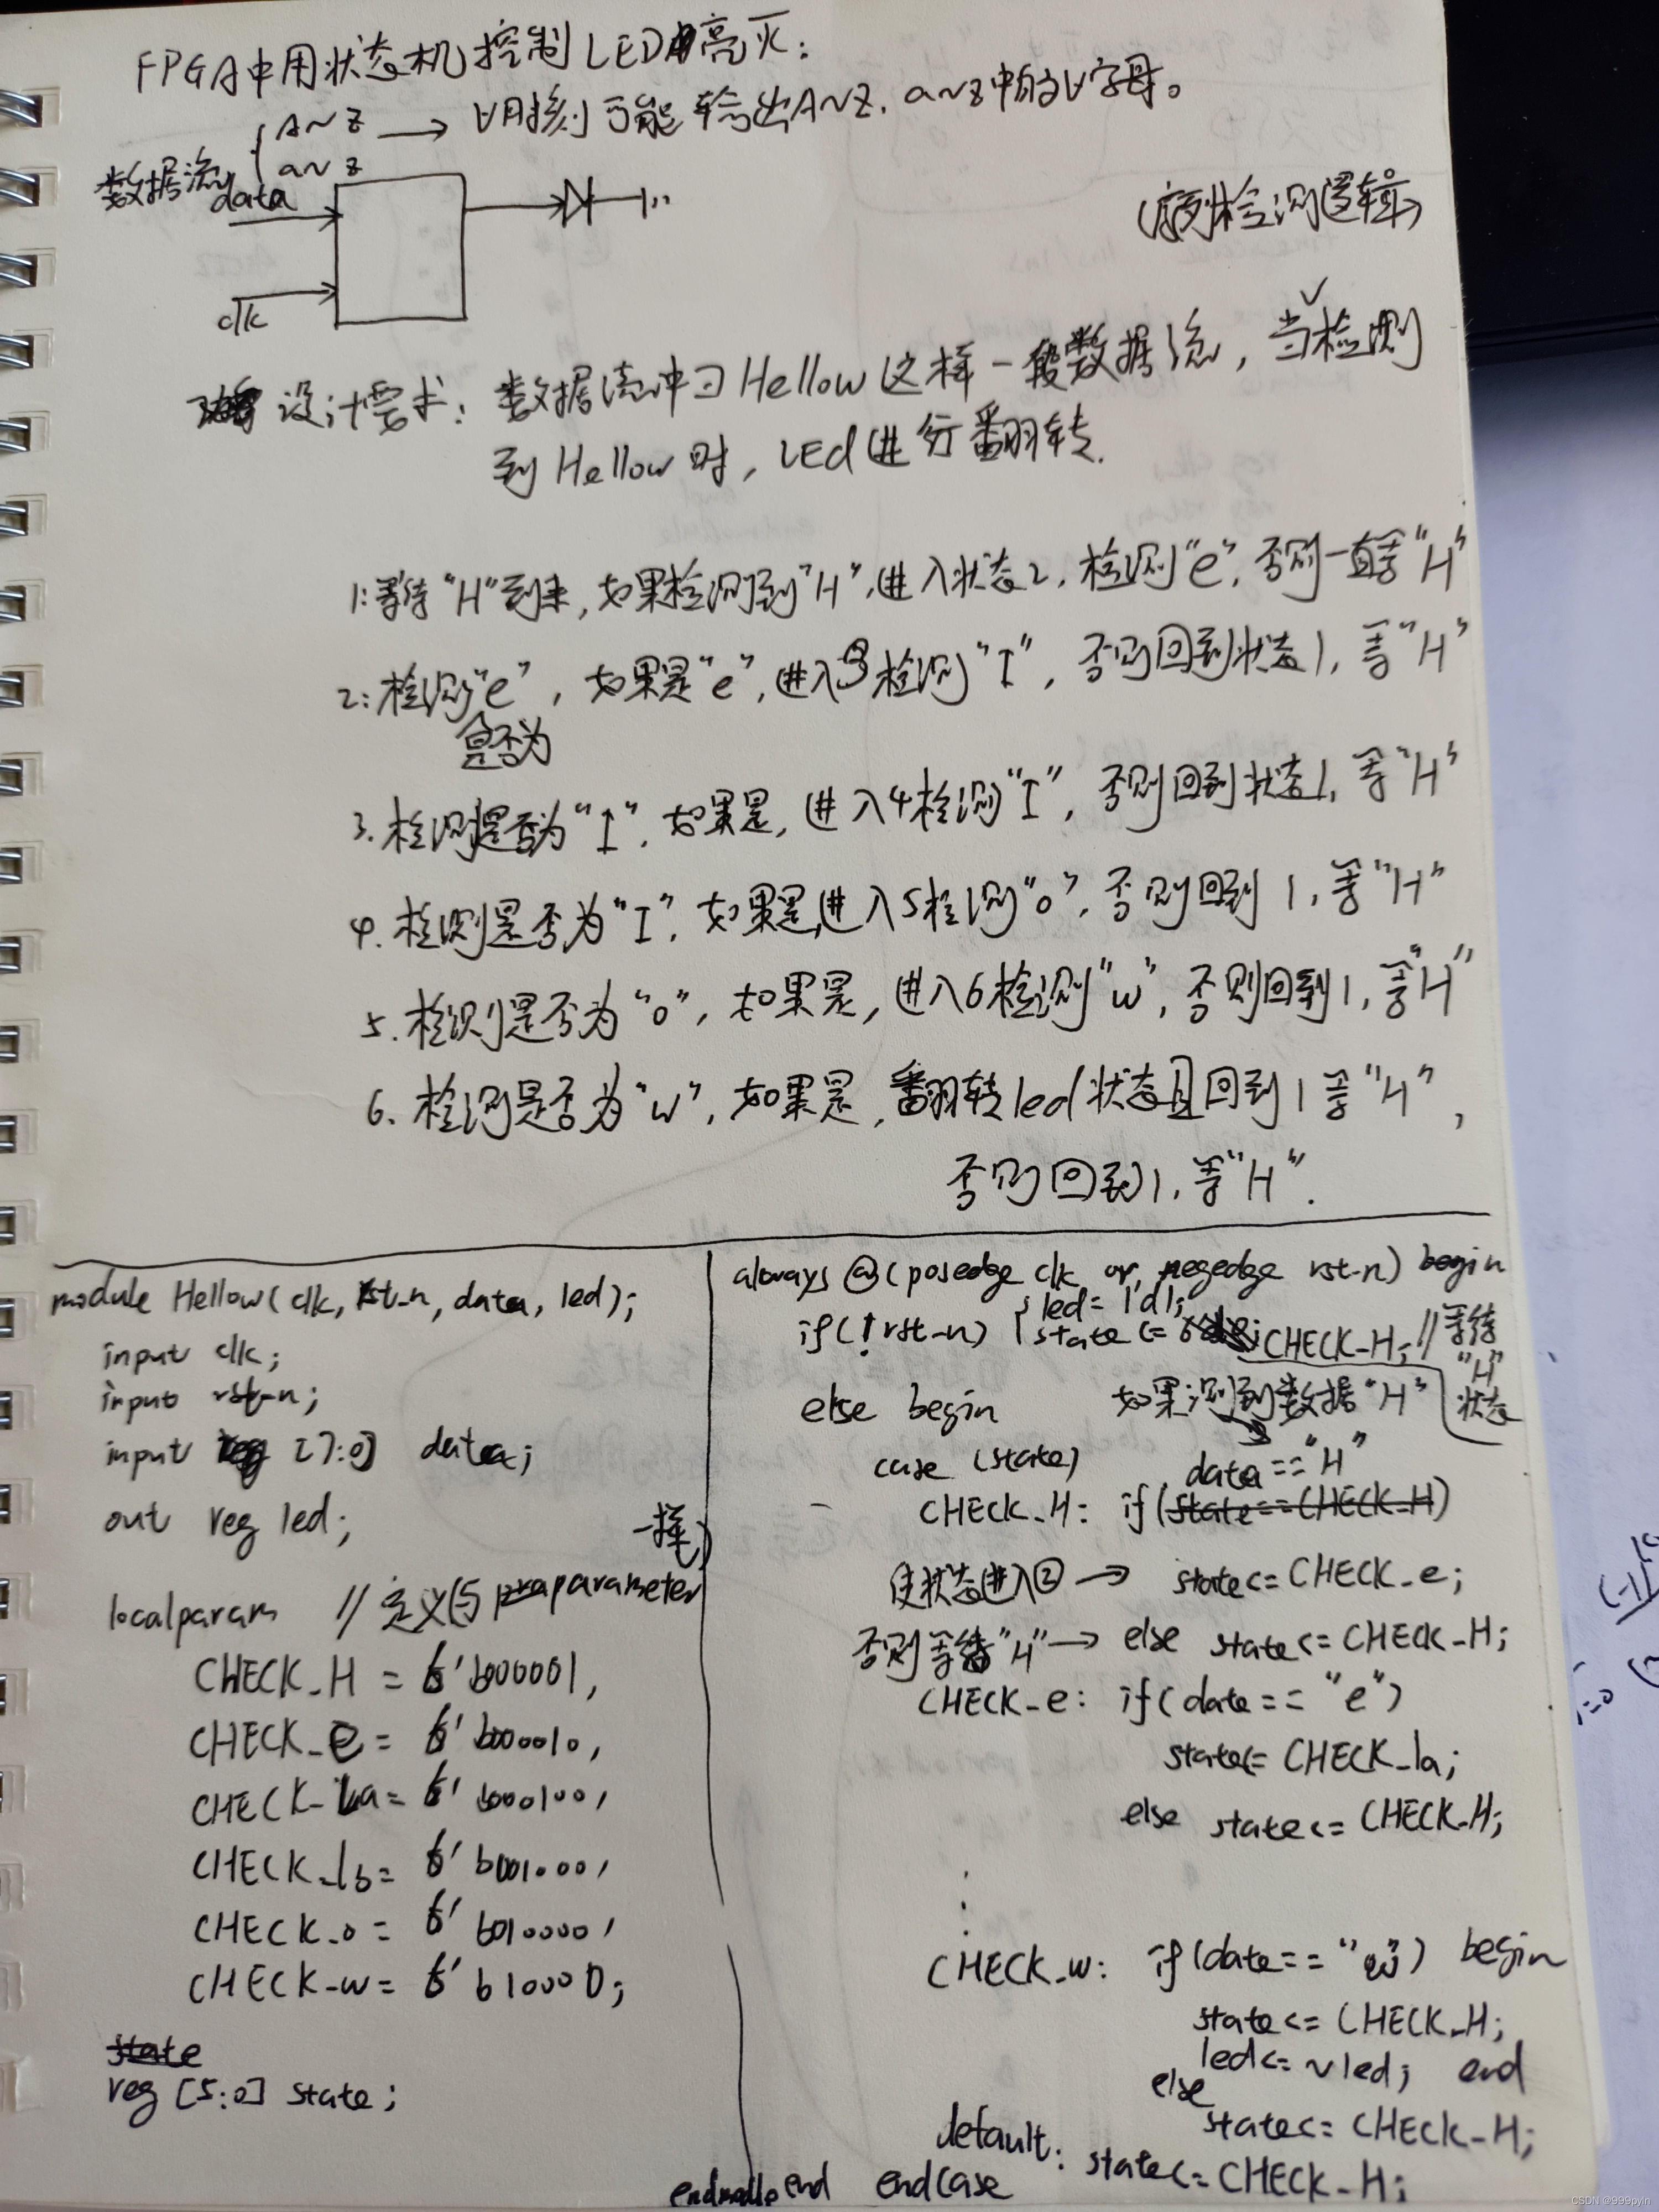 FPGA中用状态机控制LED中亮灭:
数据流 { A~Z → 时刻可能输出A~Z, a~z中的字母。
a~z
data
clk
(序列检测逻辑)
设计需求: 数据流中 Hellow 这样一段数据流, 当检测
到 Hellow 时, LEd 进行翻转.
1:等待"H"到来, 如果检测到"H",进入状态2, 检测"e", 否则一直等"H"
2:检测"e", 如果是"e", 进入3检测"I", 否则回到状态1, 等"H"
是否为
3. 检测是否为"I", 如果是, 进入4检测"I", 否则回到状态1, 等"H"
4. 检测是否为"I", 如果是,进入5检测"o", 否则回到1, 等"H"
5. 检测是否为"o", 如果是, 进入6检测"w", 否则回到1, 等"H"
6. 检测是否为"w", 如果是, 翻转led状态且回到1等"H",
否则回到1, 等"H".
module Hellow(clk, rst_n, data, led);
input clk;
input rst_n;
input [7:0] data;
out reg led;
localparam // 定义(与parameter一样)
CHECK_H = 6'b000001,
CHECK_e = 6'b000010,
CHECK_la = 6'b000100,
CHECK_lb = 6'b001000,
CHECK_o = 6'b010000,
CHECK_w = 6'b10000 0;
state
reg [5:0] state;
always @(posedge clk or negedge rst_n) begin
led = 1'd1;
if(!rst_n) state <= CHECK_H; //等待
"H"
状态
else begin 如果识到数据"H"
case (state) data == "H"
CHECK_H: if(state == CHECK_H)
使状态进入② → state <= CHECK_e;
否则等待"H" → else state <= CHECK_H;
CHECK_e: if(date == "e")
state <= CHECK_la;
else state <= CHECK_H;
CHECK_w: if(date == "w") begin
state <= CHECK_H;
led <= ~led; end
else
state <= CHECK_H;
default: state <= CHECK_H;
endmodule end endcase
CSDN @999pyln